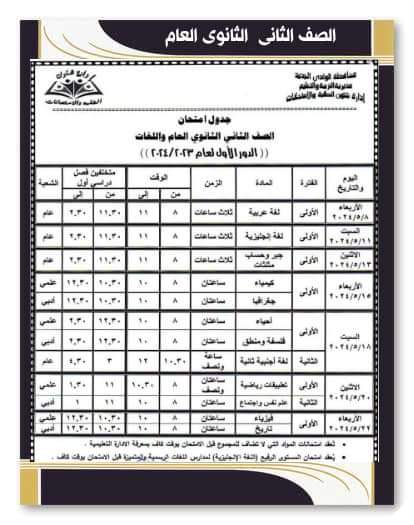 الصف الثانى الثانوى العام
محافظة الوادى الجديد
مديرية التربية والتعليم
إدارة شئون الطلبة والامتحانات
جدول امتحان
الصف الثاني الثانوي العام واللغات
(( الدور الأول لعام ٢٠٢٣/٢٠٢٤ ))
اليوم والتاريخ الفترة المادة الزمن الوقت من إلى متخلفين فصل دراسي أول من إلى الشعبة
الأربعاء ٢٠٢٤/٥/٨ الأولى لغة عربية ثلاث ساعات ٨ ١١ ١١.٣٠ ٢.٣٠ عام
السبت ٢٠٢٤/٥/١١ الأولى لغة إنجليزية ثلاث ساعات ٨ ١١ ١١.٣٠ ٢.٣٠ عام
الاثنين ٢٠٢٤/٥/١٣ الأولى جبر وحساب مثلثات ثلاث ساعات ٨ ١١ ١١.٣٠ ٢.٣٠ عام
الأربعاء ٢٠٢٤/٥/١٥ الأولى كيمياء ساعتان ٨ ١٠ ١٠.٣٠ ١٢.٣٠ علمي
جغرافيا ساعتان ٨ ١٠ ١٠.٣٠ ١٢.٣٠ أدبي
السبت ٢٠٢٤/٥/١٨ الأولى أحياء ساعتان ٨ ١٠ ١٢.٣٠ ٢.٣٠ علمي
فلسفة ومنطق ساعتان ٨ ١٠ ١٢.٣٠ ٢.٣٠ أدبي
الثانية لغة أجنبية ثانية ساعة ونصف ١٠.٣٠ ١٢ ٣ ٤.٣٠ عام
الاثنين ٢٠٢٤/٥/٢٠ الأولى تطبيقات رياضية ساعتان ونصف ٨ ١٠.٣٠ ١١ ١.٣٠ علمي
الثانية علم نفس واجتماع ساعتان ٨ ١٠ ١١ ١ أدبي
الأربعاء ٢٠٢٤/٥/٢٢ الأولى فيزياء ساعتان ٨ ١٠ ١٠.٣٠ ١٢.٣٠ علمي
تاريخ ساعتان ٨ ١٠ ١٠.٣٠ ١٢.٣٠ أدبي
تعقد امتحانات المواد التي لا تضاف للمجموع قبل الامتحان بوقت كاف بمعرفة الادارة التعليمية .
يعقد امتحان المستوى الرفيع (اللغة الإنجليزية) لمدارس اللغات الرسمية والمتميزة قبل الامتحان بوقت كاف .